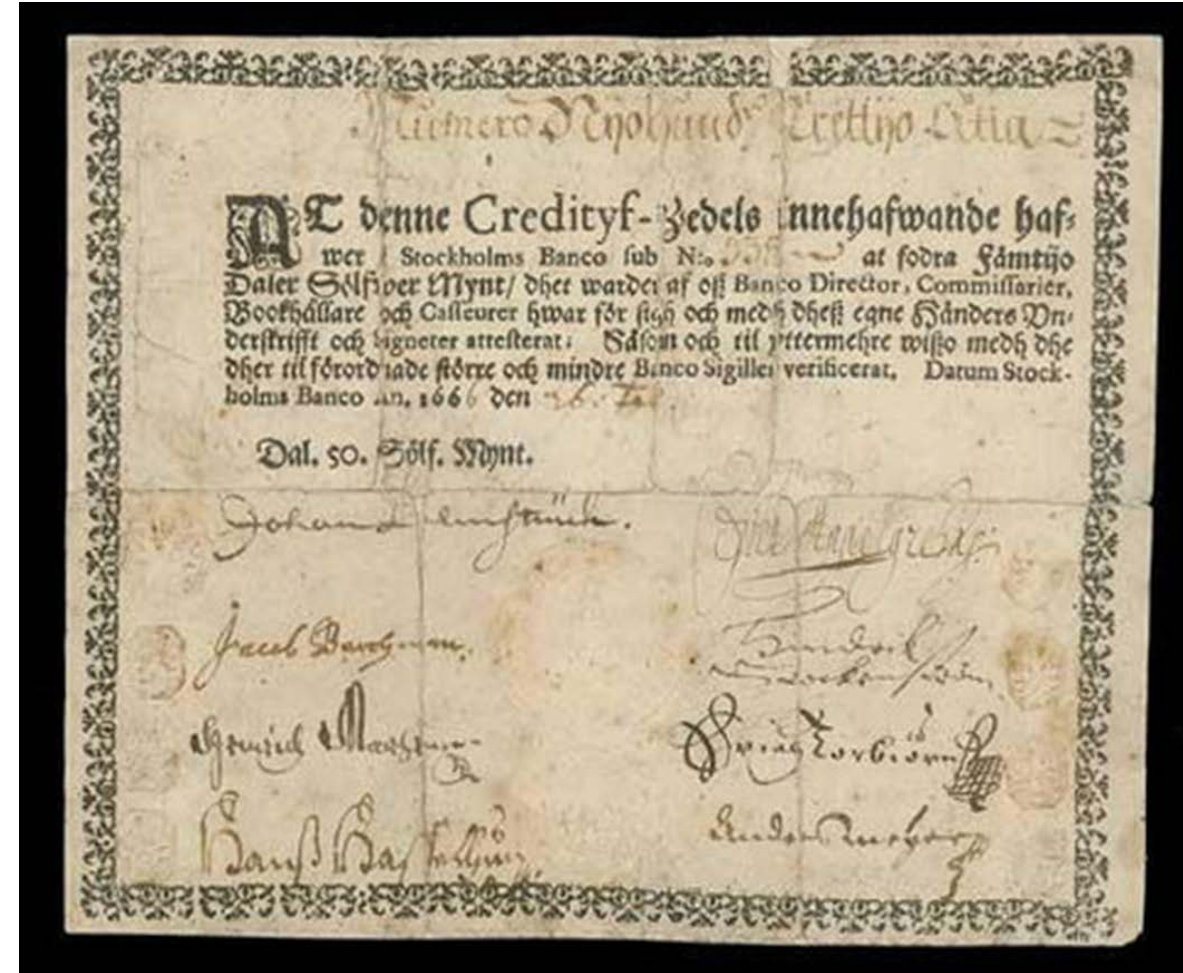 Numero Nijohund Trettijo Åtta
AT denne Credityf-Zedels Innehafwande haf-
wer i Stockholms Banco sub N:o 938 at fodra Fämtijo
Daler Sölfwer Mynt/ dhet warder af oß Banco Director, Commissarier,
Bookhållare och Casseurer hwar för sigh och medh dheß egne Händers Vn-
derskrifft och Signeter attesterat; Såsom och til yttermehre wißo medh dhe
dher til förordnade större och mindre Banco Sigillet verificerat. Datum Stock-
holms Banco An. 1666 den
Dal. 50. Sölf. Mynt.
Johan
Jacob
Hendrik
Hinrich
Hanß
Anders Meyer